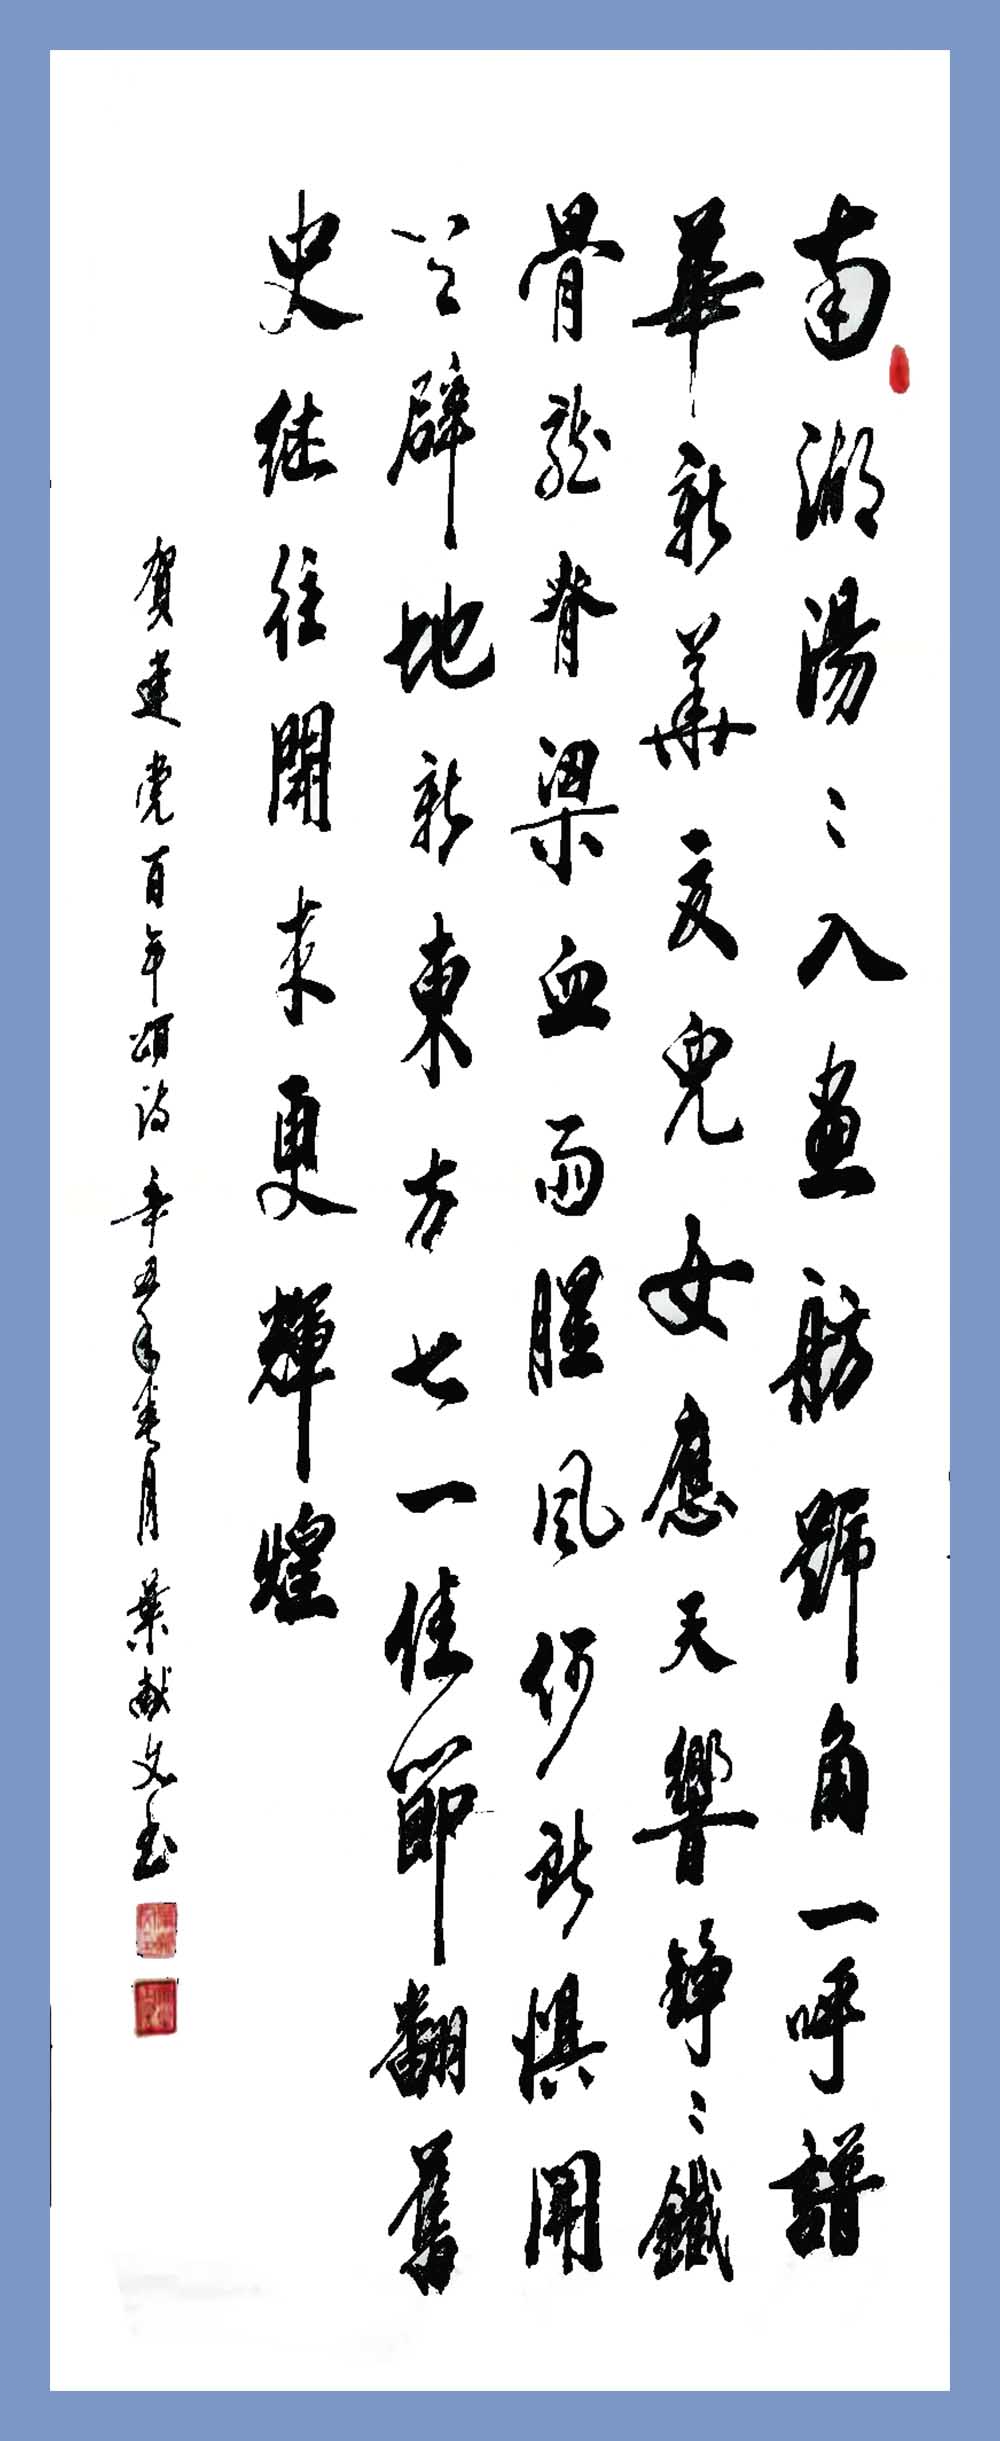 南湖湯〻入畫舫號角一呼譜
華新華夏兒女應天響錚〻鐵
骨龍脊梁血雨腥風何所懼開
天辟地新東方七一佳節翻舊
史继往開来更輝煌
賀建党百年頌詩 辛丑年春月 葉献文书